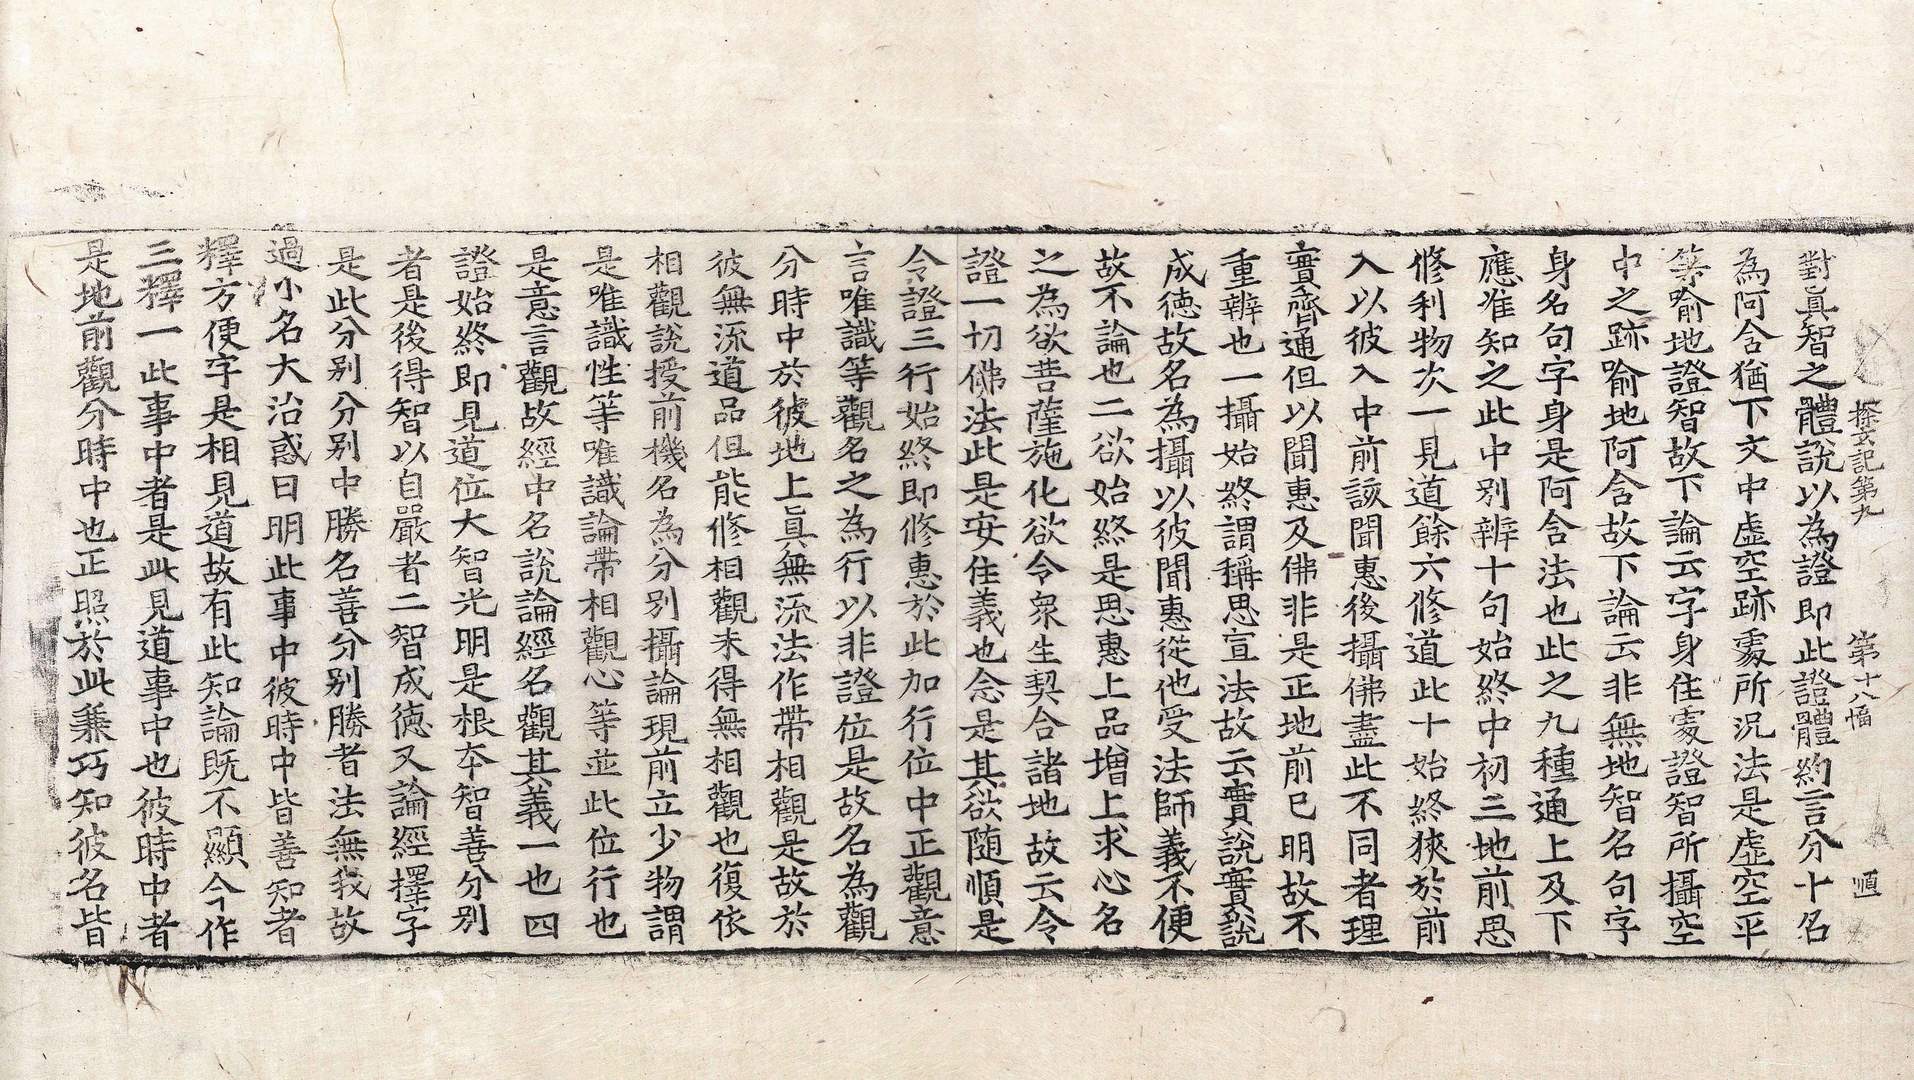 探玄記第九 第十八幅 順
對眞智之體說以為證即此證體約言分十名
為阿含猶下文中虛空跡處所況法是虛空平
等喻地證智故下論云字身住處證智所攝空
中之跡喻地阿含故下論云非無地智名句字
身名句字身是阿含法也此之九種通上及下
應准知之此中別辨十句始終中初三地前思
修利物次一見道餘六修道此十始終狹於前
入以彼入中前該聞惠後攝佛盡此不同者理
實齊通但以聞惠及佛非是正地前已明故不
重辨也一攝始終謂稱思宣法故云實說實說
成德故名為攝以彼聞惠從他受法師義不便
故不論也二欲始終是思惠上品增上求心名
之為欲菩薩施化欲令衆生契合諸地故云令
證一切佛法此是安住義也念是其欲随順是
令證三行始終即修惠於此加行位中正觀意
言唯識等觀名之為行以非證位是故名為觀
分時中於彼地上眞無流法作帶相觀是故於
彼無流道品但能修相觀未得無相觀也復依
相觀說授前機名為分別攝論現前立少物謂
是唯識性等唯識論帶相觀心等並此位行也
是意言觀故經中名說論經名觀其義一也四
證始終即見道位大智光明是根夲智善分別
者是後得智以自嚴者二智成德又論經擇字
是此分别分别中勝名善分别勝者法無我故
過小名大治惑曰明此事中彼時中皆善知者
釋方便字是相見道故有此知論既不顯今作
三釋一此事中者是此見道事中也彼時中者
是地前觀分時中也正照於此兼巧知彼名皆